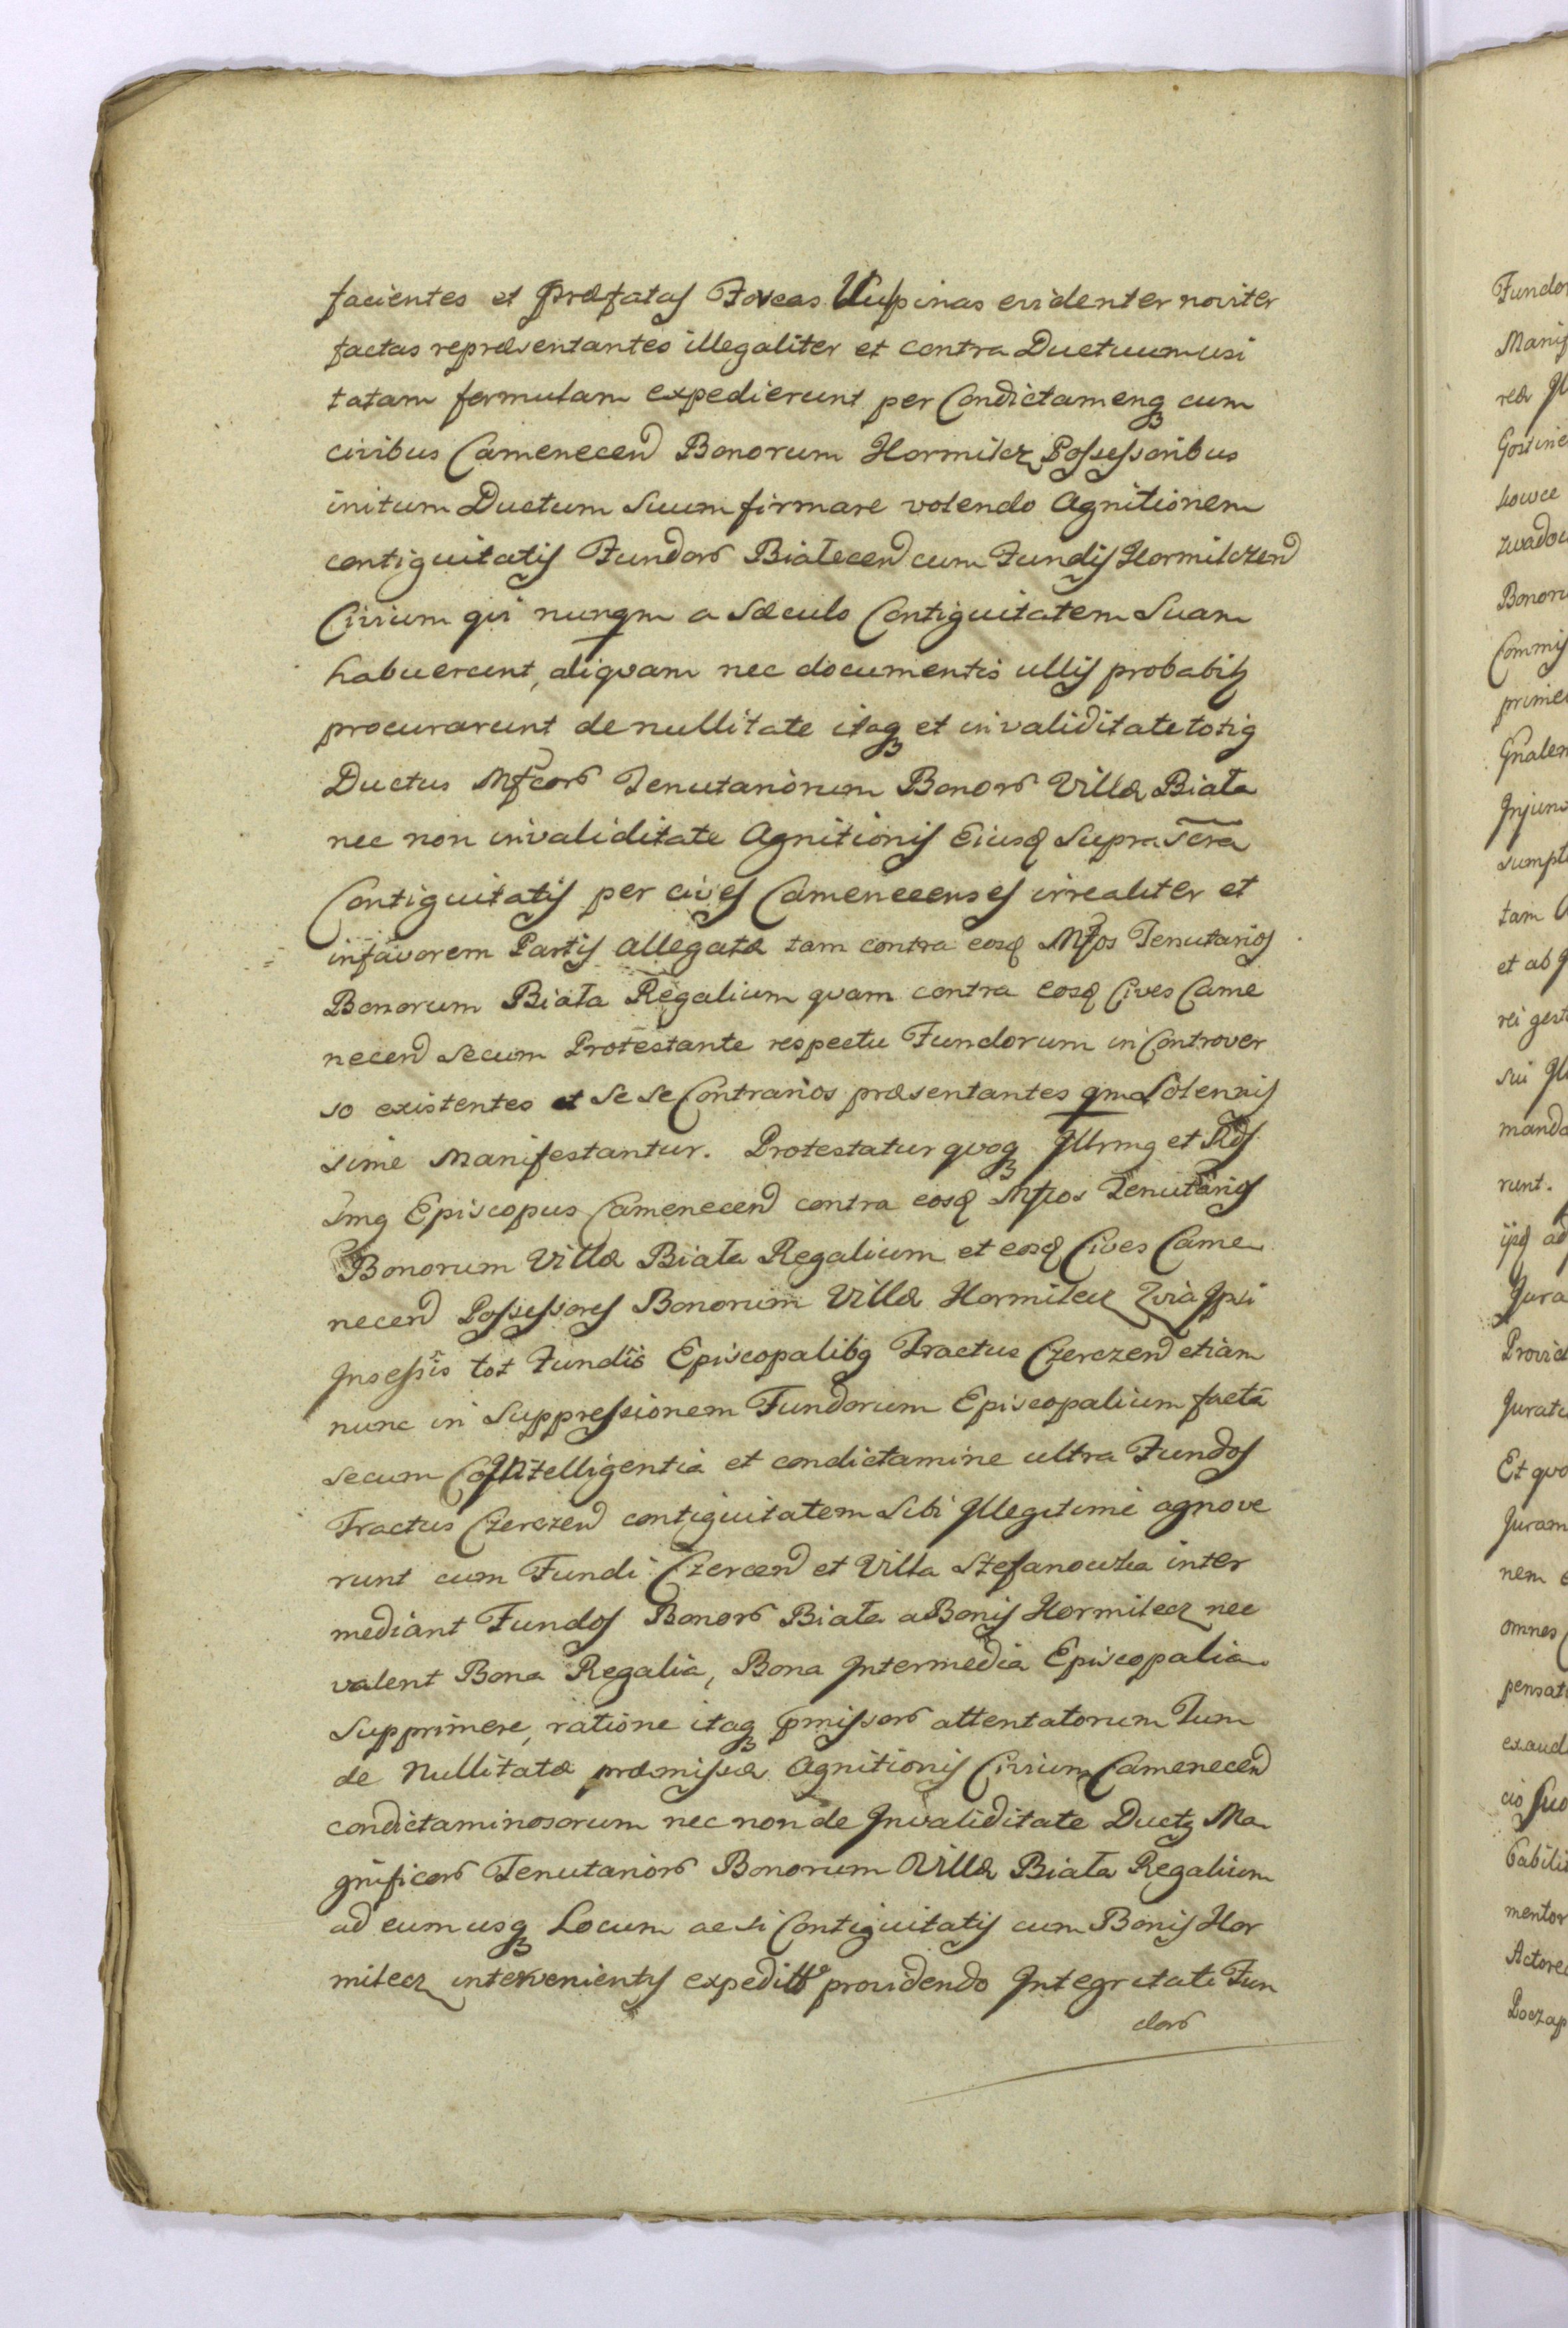 facientes et præfatas Foveas Vulpinas evidenter noviter
factas repræsentantes illegaliter et contra Ductuum usi
tatam formulam expedierunt per Condictamenq cum
civibus Camenecen Bonorum Hormilcz Possessoribus
initum Ductum Suum firmare volendo Agnitionem
contiguitatis Fundor Białecen cum Fundis Hormilczen
Civium qvi nunqm a Sæculo Contiguitatem Suam
habuerunt, aliqvam nec documentis ullis probabit
procurarunt de nullitate itaq et invaliditate totig
Ductus Mfcor Tenutariorum Bonor Villæ Biała
nec non invaliditate Agnitionis Eiusd Supra Scra
Contiguitatis per cives Camenecenses irrealiter et
in favorem Partis allegatæ tam contra eosd Mfos Tenutarios
Bonorum Biała Regalium qvam contra eosd Cives Came
necen secum Protestante respectu Fundorum in Controver
so existentes et se se Contrarios præsentantes qm Solennis
sime Manifestantur. Protestatur qvoq Illrmg et Rds
smg Episcopus Camenecen contra eosd Mfcos Tenutarios
Bonorum Villæ Biała Regalium et eosd Cives Came
necen Possessores Bonorum Villæ Hormilecz Qvia Ipsi
Insessis tot Fundis Episcopalibg Tractus Czerczen etiam
nunc in Suppressionem Fundorum Episcopalium facta
secum CoIntelligentia et condictamine ultra Fundos
Tractus Czerczen contiguitatem Sibi Illegitime agnove
runt cum Fundi Czercen et Villa Stefanowka inter
mediant Fundos Bonor Biała a Bonis Hormilecz nec
valent Bona Regalia, Bona Intermedia Episcopalia
Supprimere, ratione itaq pmissor attentatorum Tum
de Nullitatæ præmissæ Agnitionis Civium Camenecen
condictaminosorum nec non de Invaliditate Ductg Ma
gnificor Tenutarior Bonorum Villæ Biała Regalium
ad eum usq Locum ac si Contiguitatis cum Bonis Hor
milecz intervenientis expedit providendo Integritati Fun
dor